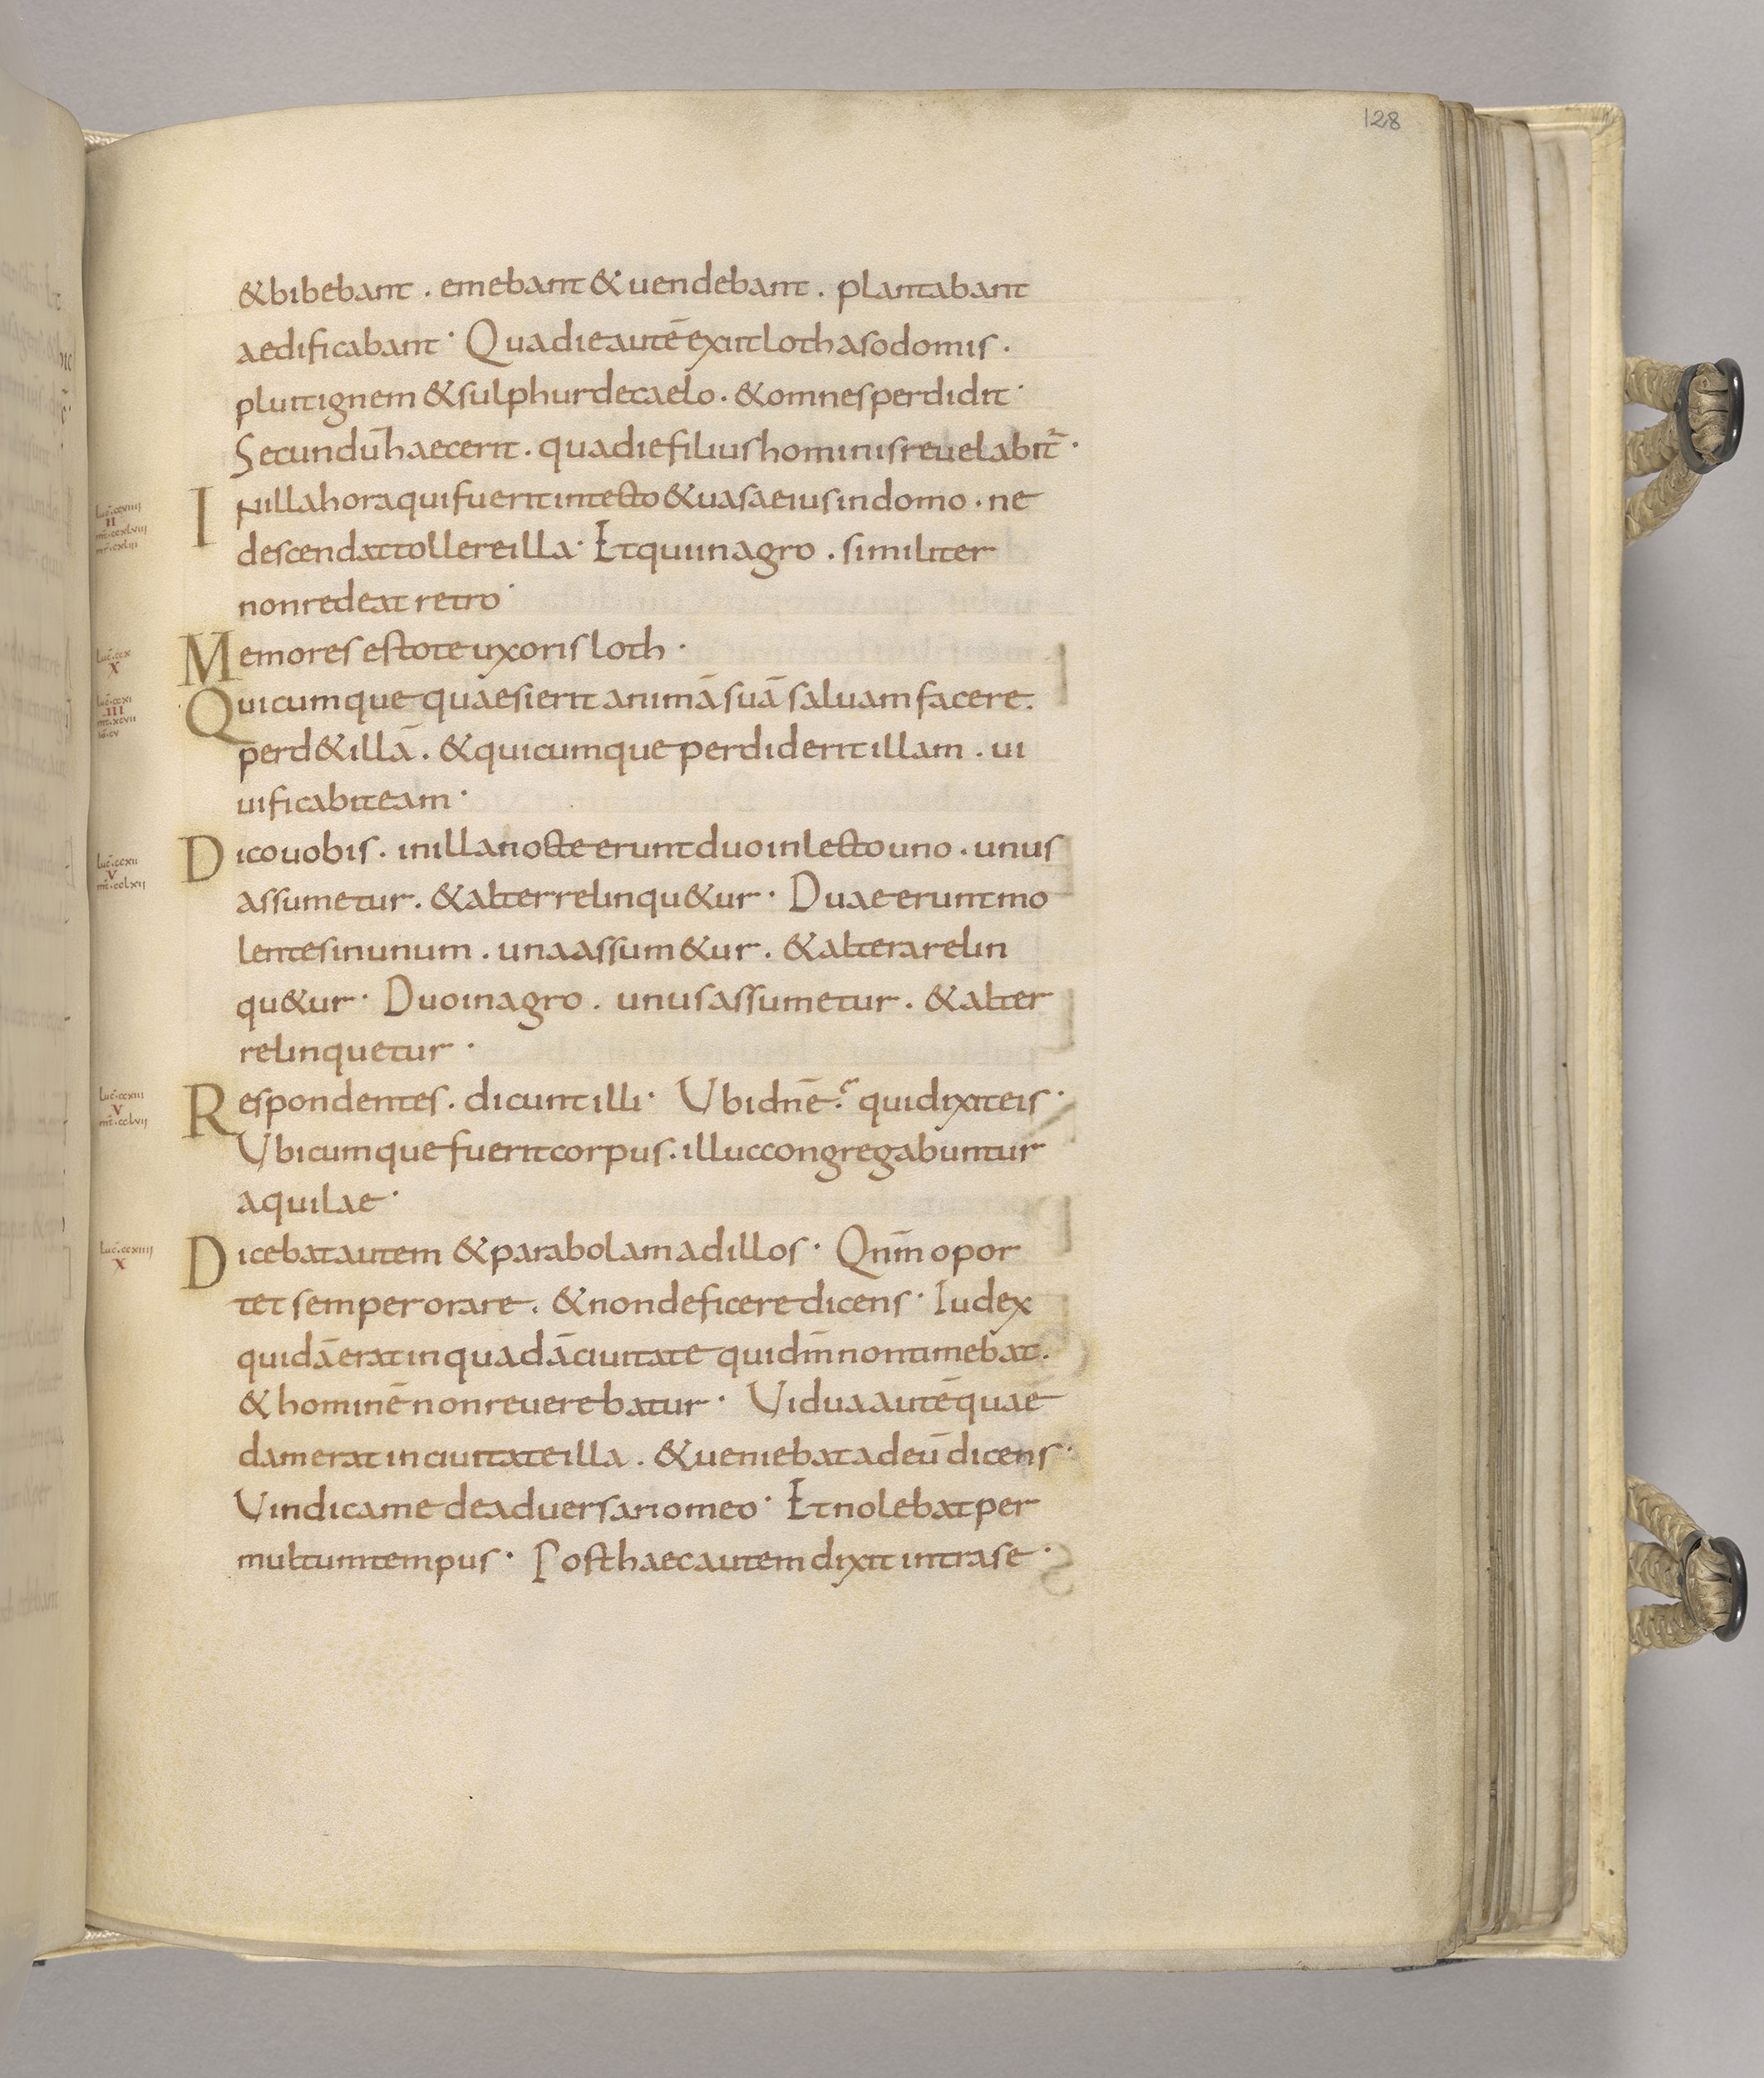 128
& bibebant . emebant & uendebant . plantabant
aedificabant · Qua die autē exiit loth a sodomis .
pluit ignem & sulphur de caelo . & omnes perdidit ·
Secundū haec erit . qua die filius hominis reuelabit̄ ·
luc̄ · ccviiii
II
mt̄ · ccxlviii
mr̄ · cxliii
IN illa hora qui fuerit in tecto & uasa eius in domo . ne
descendat tollere illa · Et qui in agro . similiter
non redeat retro ·
luc̄ · ccx
X
Memores estote uxoris loth ·
luc̄ · ccxi
III
mt̄ · xcvii
iō · cv
Quicumque quaesierit animā suā saluam facere .
perd& illā . & quicumque perdiderit illam . ui
uificabit eam ·
luc̄ · ccxii
V
mt̄ · cclxii
Dico uobis . in illa nocte erunt duo in lecto uno . unus
assumetur . & alter relinqu&ur · Duae erunt mo
lentes in unum . una assum&ur . & altera relin
qu&ur · Duo in agro . unus assumetur . & alter
relinquetur ·
luc̄ · ccxiii
V
mt̄ · cclvii
Respondentes . dicunt illi · Ubi dn̄e ? qui dixit eis ·
Ubicumque fuerit corpus . illuc congregabuntur
aquilae ·
luc̄ · ccxiiii
X
Dicebat autem & parabolam ad illos · Qnm̄ opor
tet semper orare . & non deficere dicens · Iudex
quidā erat in quadā ciuitate qui dm̄ non timebat .
& hominē non reuerebatur · Uidua autē quae
dam erat in ciuitate illa . & ueniebat ad eū dicens ·
Uindica me de aduersario meo · Et nolebat per
multum tempus · Post haec autem dixit intra se ·